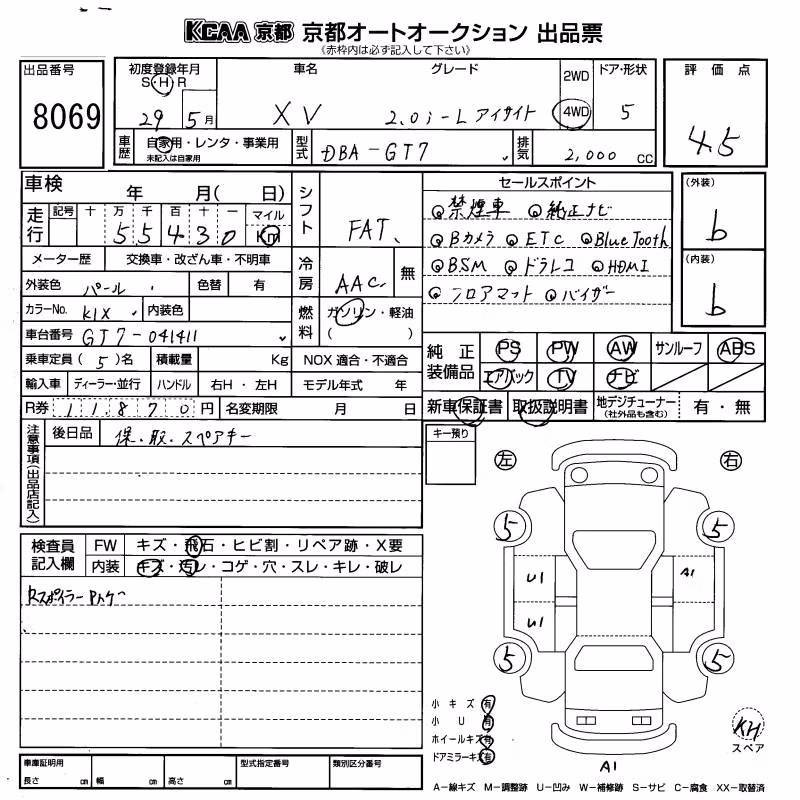 KCAA 京都 京都オートオークション 出品票
(赤枠内は必ず記入して下さい)
出品番号
8069
初度登録年月
S・H・R
29 5月
車名
XV
グレード
2.0i-L アイサイト
2WD
4WD
ドア・形状
5
評価点
4.5
車歴
自家用・レンタ・事業用
未記入は自家用
型式
DBA-GT7
排気
2,000 CC
車検 年 月( 日)
走行
記号 十 万 千 百 十 一 マイル
5 5 4 3 0 Km
メーター歴 交換車・改ざん車・不明車
外装色 パール 色替 有
カラーNo. K1X 内装色
車台番号 GT7-041411
乗車定員 (5)名 積載量 Kg
輸入車 ディーラー・並行 ハンドル 右H・左H
R券 11870円 名変期限 月 日
シフト
FAT
冷房
AAC 無
燃料
ガソリン・軽油
( )
NOX 適合・不適合
モデル年式 年
セールスポイント
禁煙車 純正ナビ
Bカメラ ETC BlueTooth
BSM ドラレコ HDMI
フロアマット バイザー
(外装)
b
(内装)
b
純正装備品
PS PW AW サンルーフ ABS
エアバック TV ナビ
新車保証書 取扱説明書 地デジチューナー(社外品も含む) 有・無
注意事項(出品店記入)
後日品 保・取・スペアキー
キー預り
左
右
検査員記入欄
FW キズ・飛石・ヒビ割・リペア跡・X要
内装 キズ・汚レ・コゲ・穴・スレ・キレ・破レ
Rスポイラー Pトケー
5
5
U1
A1
U1
5
5
小キズ 有
小U 有
ホイールキズ 有
ドアミラーキズ 有
KH
スペア
A1
車庫証明用
長さ cm 幅 cm 高さ cm
型式指定番号
類別区分番号
A−線キズ M−調整跡 U−凹み W−補修跡 S−サビ C−腐食 XX−取替済